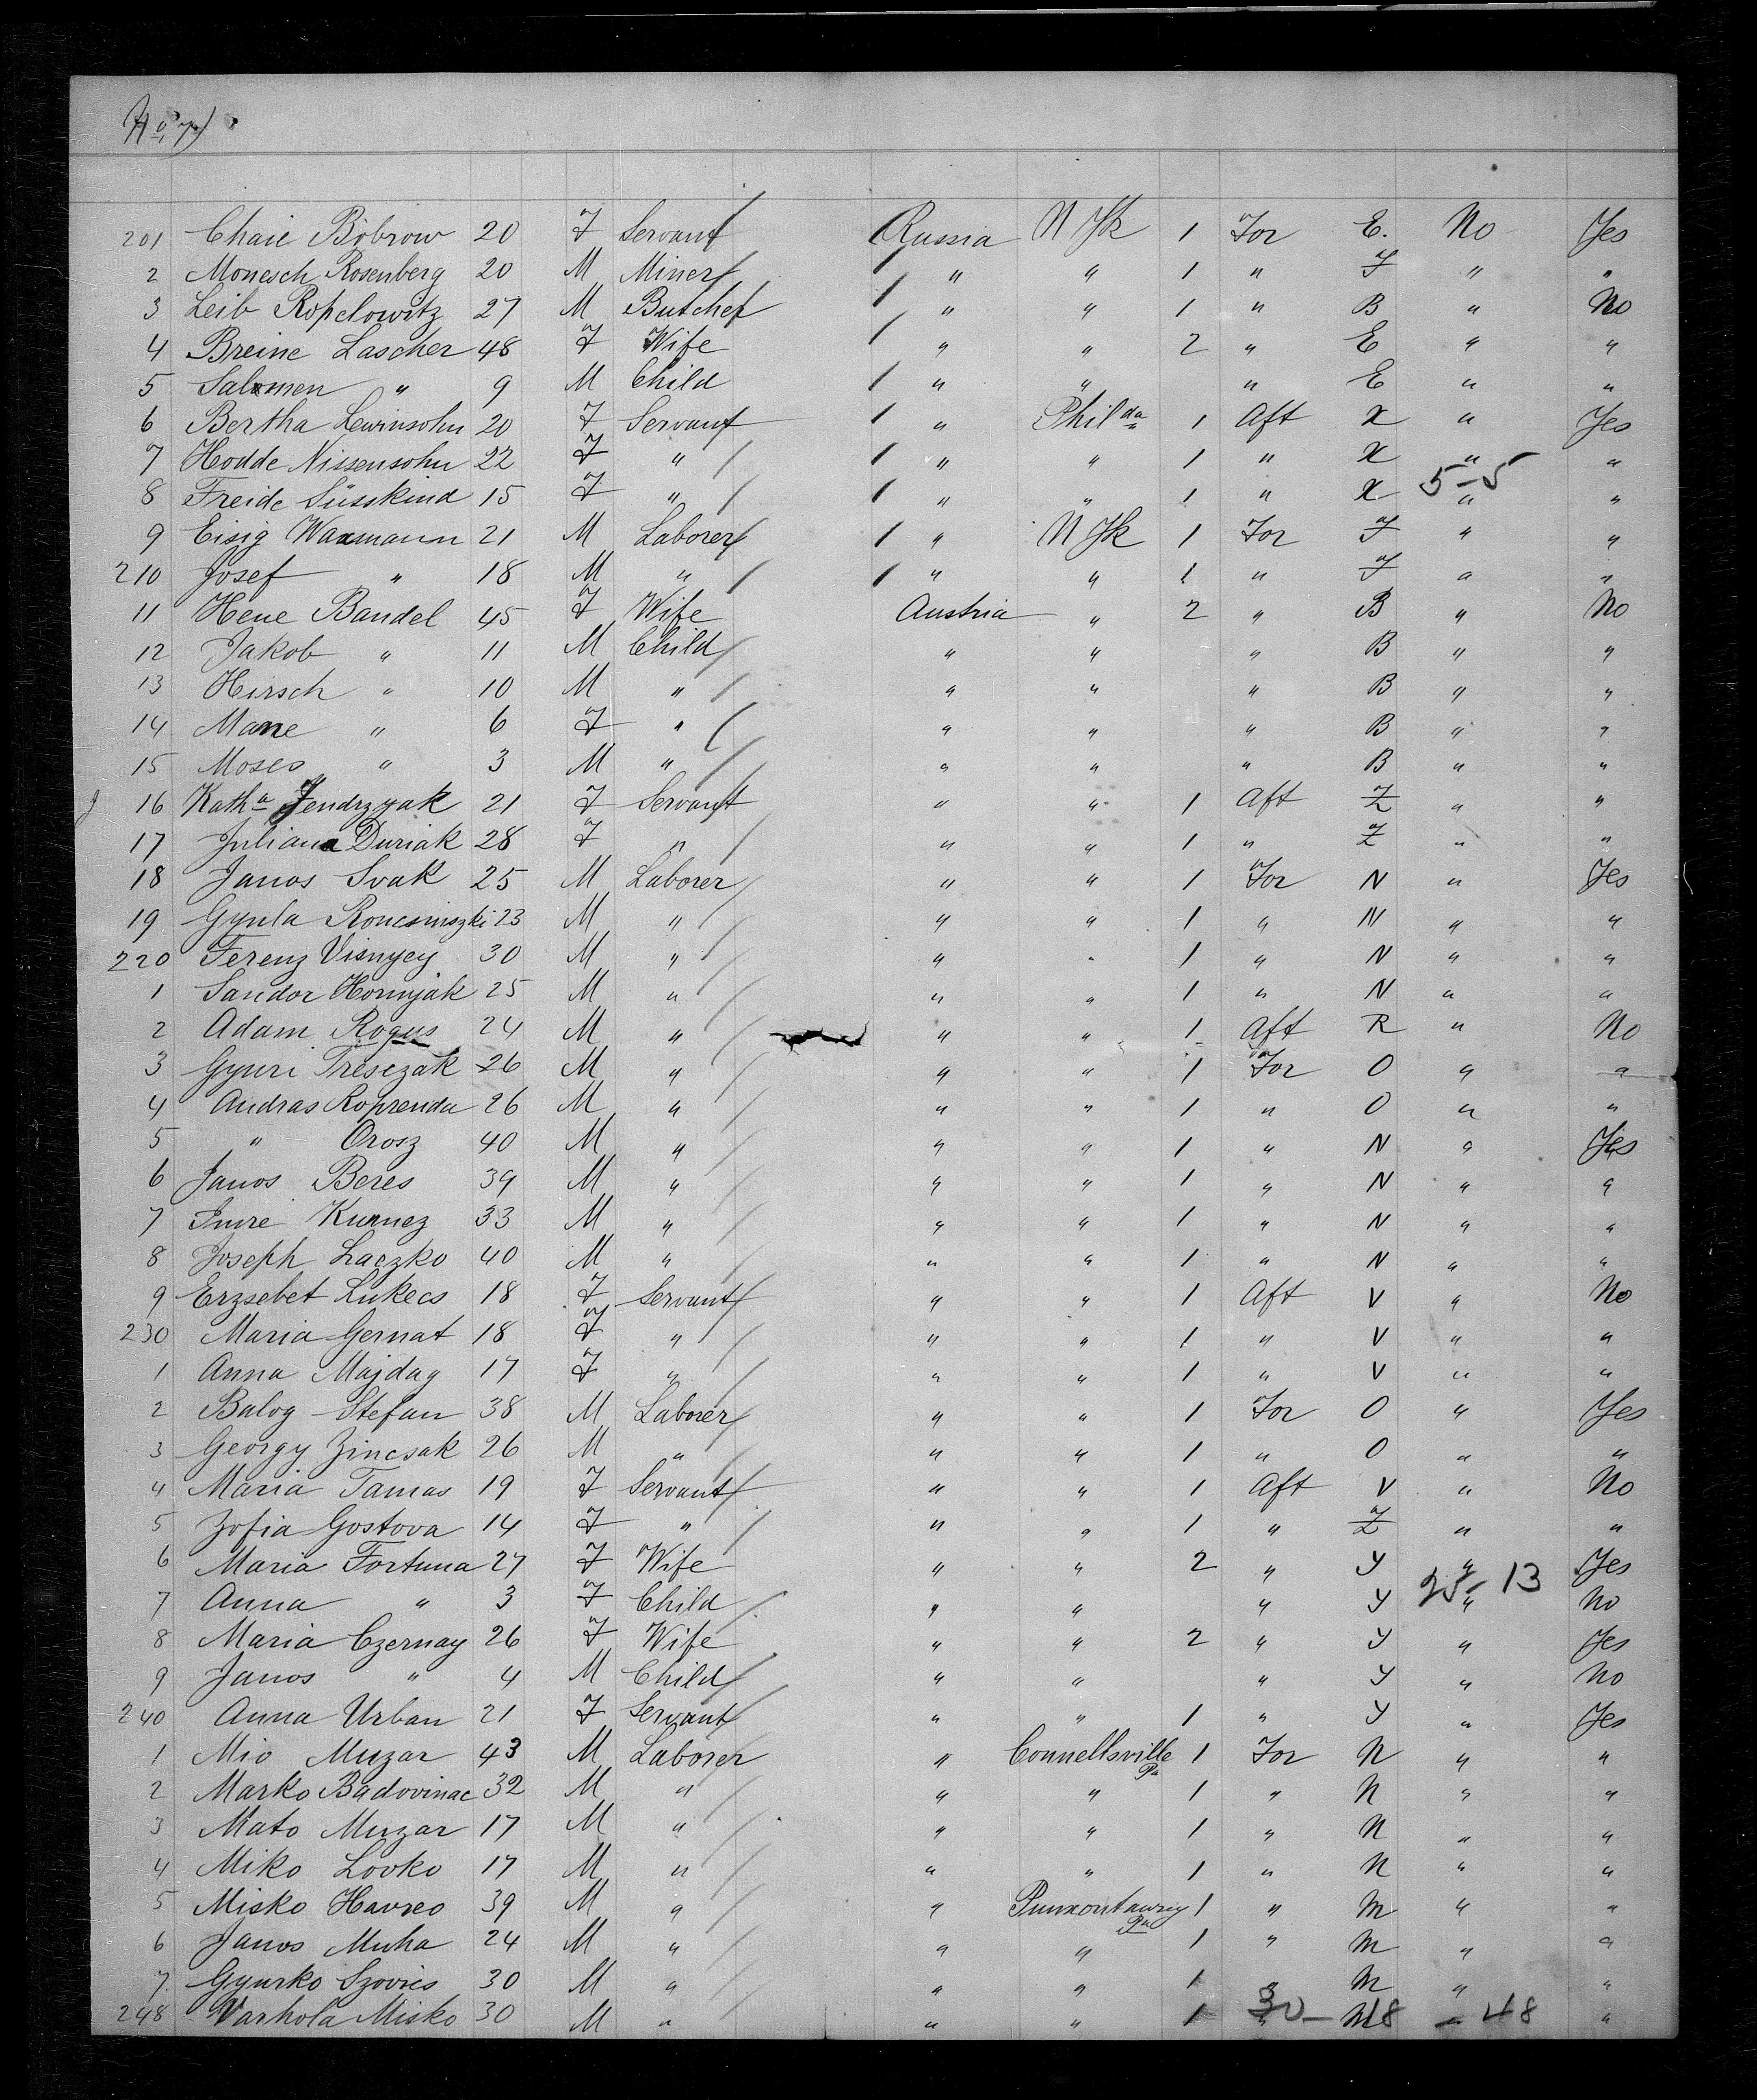 No. 7)
201 Chaie Bobrow 20 F Servant Russia N Yk 1 For E. No Yes
2 Monesch Rosenberg 20 M Miner " " 1 " F " "
3 Leib Kopelowitz 27 M Butcher " " 1 " B " No
4 Breine Lascher 48 F Wife " " 2 " E " "
5 Salomen " 9 M Child " " " E " "
6 Bertha Lewinsohn 20 F Servant " Philda 1 Aft X " Yes
7 Hodde Nissensohn 22 F " " " 1 " X " "
5-5
8 Freide Süsskind 15 F " " " 1 " X " "
9 Eisig Waxmann 21 M Laborer " N Yk 1 For F " "
210 Josef " 18 M " " " 1 " F " "
11 Hene Bandel 45 F Wife Austria " 2 " B " No
12 Jakob " 11 M Child " " " B " "
13 Hirsch " 10 M " " " " B " "
14 Mane " 6 F " " " " B " "
15 Moses " 3 M " " " " B " "
16 Katha Jendrzyak 21 F Servant " " 1 Aft Z " "
17 Juliana Duriak 28 F " " " 1 " Z " "
18 Janos Svak 25 M Laborer " " 1 For N " Yes
19 Gyula Roncsinszki 23 M " " " 1 " N " "
220 Ferenz Visnyey 30 M " " " 1 " N " "
1 Sandor Hornyak 25 M " " " 1 " N " "
2 Adam Rogus 24 M " " " 1 Aft R " No
3 Gyuri Tresczak 26 M " " " 1 For O " "
4 Andras Koprenda 26 M " " " 1 " O " "
5 " Orosz 40 M " " " 1 " N " Yes
6 Janos Beres 39 M " " " 1 " N " "
7 Imre Kunnez 33 M " " " 1 " N " "
8 Joseph Laczko 40 M " " " 1 " N " "
9 Erzsebet Lukecs 18 F Servant " " 1 Aft V " No
230 Maria Gernat 18 F " " " 1 " V " "
1 Anna Majdag 17 F " " " 1 " V " "
2 Balog Stefan 38 M Laborer " " 1 For O " Yes
3 Georgy Zincsak 26 M " " " 1 " O " "
4 Maria Tamas 19 F Servant " " 1 Aft V " No
5 Zofia Gostova 14 F " " " 1 " Z " "
6 Maria Fortuna 27 F Wife " " 2 " Y " Yes
25-13
7 Anna " 3 F Child " " " Y " No
8 Maria Czernay 26 F Wife " " 2 " Y " Yes
9 Janos " 4 M Child " " " Y " No
240 Anna Urban 21 F Servant " " 1 " Y " Yes
1 Mio Muzar 43 M Laborer " Connellsville Pa 1 For N " "
2 Marko Badovinac 32 M " " " 1 " N " "
3 Mato Muzar 17 M " " " 1 " N " "
4 Miko Lovko 17 M " " " 1 " N " "
5 Misko Havreo 39 M " " Punxontawny Pa 1 " M " "
6 Janos Muha 24 M " " " 1 " M " "
7. Gyurko Szovics 30 M " " " 1 " M " "
248 Varhola Misko 30 M " " " 1 " M " "
30-18-48